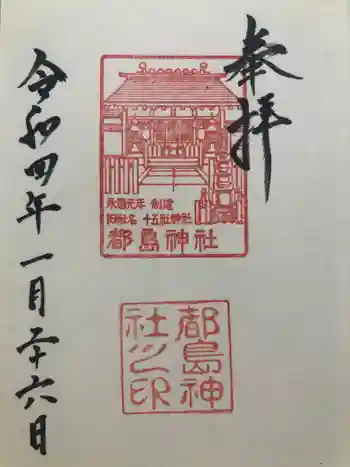 奉拝
永禄元年 創建
旧社名 十五社神社
都島神社
都島神
社之印
令和四年一月二十六日